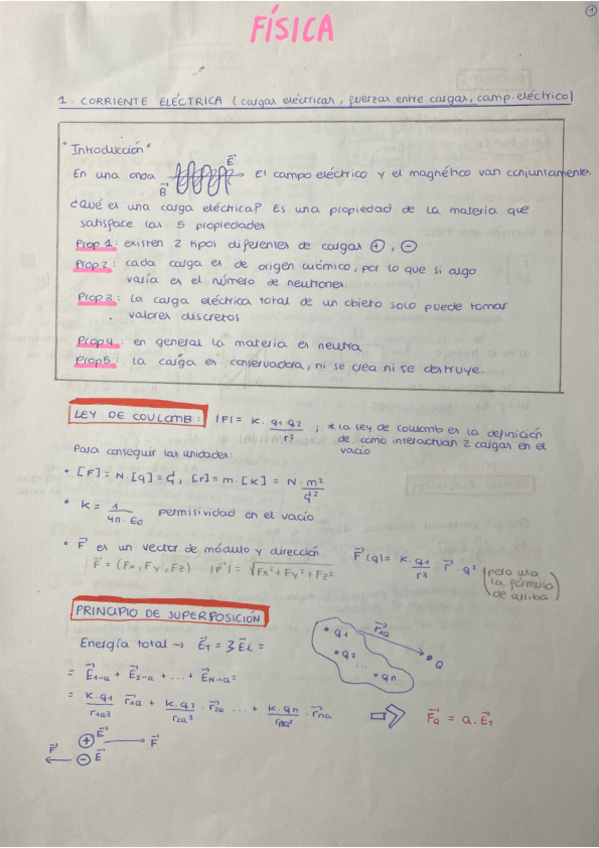 1
FÍSICA
1. CORRIENTE ELÉCTRICA (cargas eléctricas, fuerzas entre cargas, camp. eléctrico)
"Introducción"
En una onda B⃗ E⃗ El campo eléctrico y el magnético van conjuntamente.
¿Qué es una carga eléctrica? Es una propiedad de la materia que
satisface las 5 propiedades
Prop 1: existen 2 tipos diferentes de cargas ⊕, ⊖
Prop 2: cada carga es de origen atómico, por lo que si algo
varía es el número de neutrones.
Prop 3: la carga eléctrica total de un objeto solo puede tomar
valores discretos
Prop 4: en general la materia es neutra
Prop 5: la carga es conservadora, ni se crea ni se destruye.
LEY DE COULOMB: |F| = K · q1·q2 / r² ; * la ley de coulomb es la definición
de como interactúan 2 cargas en el
vacío
Para conseguir las unidades:
• [F] = N · [q] = C, [r] = m · [K] = N · m²/C²
• K = 1/4π·ε0 permisividad en el vacío
• F⃗ es un vector de módulo y dirección
F⃗ = (Fx, Fy, Fz) |F⃗| = √Fx² + Fy² + Fz²
F⃗(q) = K · q1/r3 · r⃗ · q² (pero usa
la fórmula
de arriba)
PRINCIPIO DE SUPERPOSICIÓN
Energía total → E⃗T = 3 E⃗i =
= E⃗1-Q + E⃗2-Q + ... + E⃗N-Q =
= K·q1/r1Q³ r⃗1Q + K·q2/r2Q³ · r⃗2Q ... + K·qn/rnQ³ · r⃗nQ
q1
q2
...
qn
r⃗1Q
Q
F⃗Q = Q · E⃗T
⊕ E⃗ → F⃗
F⃗ ← ⊖ E⃗